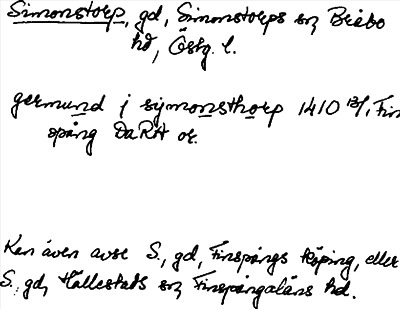 Simonstorp, gd, Simonstorps sn, Bråbo
hd, Östg. l.
germund j symonsthorp 1410 13/1, Fin
spång DaRA or.
Kan även avse S., gd, Finspångs köping, eller
S., gd, Hällestads sn, Finspångaläns hd.